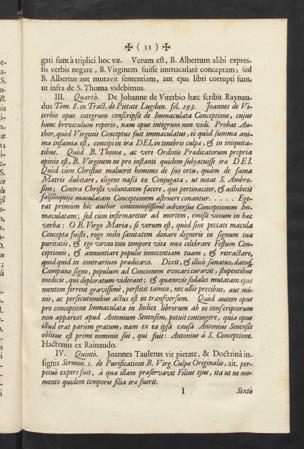 ✠ ( 33 ) ✠
gati sunt à triplici hoc væ. Verum est, B. Albertum alibi expres-
sis verbis negare, B. Virginem fuisse immaculatè conceptam; sed
B. Albertus aut mutavit sententiam, aut ejus libri corrupti sunt,
ut infra de S. Thoma videbimus.
III. Quartò. De Johanne de Viterbio hæc scribit Raynau-
dus Tom. 8. in Tract. de Pietate Lugdun. fol. 293. Joannes de Vi-
terbio opus integrum conscripsit de Immaculata Conceptione, cujus
hunc breviculum reperio, nam opus integrum non vidi. Probat Au-
thor, quòd Virginis Conceptus fuit immaculatus, eò quòd summa ani-
mæ infamia est, concipi in ira DEI, in tenebris culpæ, & in iniquita-
tibus. Quòd B. Thomæ, ac veri Ordinis Prædicatorum propria
opinio est, B. Virginem ne pro instanti quidem subjacuisse ira DEI.
Quòd cùm Christus maluerit homines de suo ortu, quàm de fama
Matris dubitare, eligens nasci ex Conjugata, ut notat S. Ambro-
sius; Contra Christi voluntatem facere, qui pertinaciter, & adhibitis
falsiloquiis maculatam Conceptionem astruere conantur. . . . . . Ege-
rat primùm hic author contentiosissimè adversus Conceptionem Im-
maculatam; sed cùm infirmaretur ad mortem, emisit votum in hæc
verba: O B. Virgo Maria, si verum est, quòd sine peccati macula
Concepta fuisti, rogo mihi sanitatem donare digneris in signum tuæ
puritatis, & ego voveo toto tempore vitæ meæ celebrare Festum Con-
ceptionis, & annuntiare populis innocentiam tuam, & retractare,
quod quid in contrarium prædicavi. Dixit, & illicò sanatus, datoq́;
Campanæ signo, populum ad Concionem evocari curavit, stupentibus
medicis, qui deploratum viderant; & quamvis sodales mutatam ejus
mentem ferrent gravissimè, perstitit tamen, nec ullis precibus, aut mi-
nis, ac persecutionibus actus est in transversum. Quòd autem opus
pro conceptione Immaculata in Indice librorum ab eo conscriptorum
non appareat apud Antonium Senensem, potuit contingere, quia opus
illud erat parùm gratum, nam ex ea ipsa causa Antonius Senensis
oblitus est primi nominis sui, qui fuit: Antonius à S. Conceptione.
Hactenus ex Rainaudo.
IV. Quintò. Joannes Taulerus vir pietate, & Doctrinâ in-
signis Sermon. 1. de Purificatione B. Virg. Culpa Originalis, ait, per-
petuò expers fuit, à qua illam præservavit Filius ejus, ita ut ne mo-
mento quidem temporis filia iræ fuerit.
I Sextò